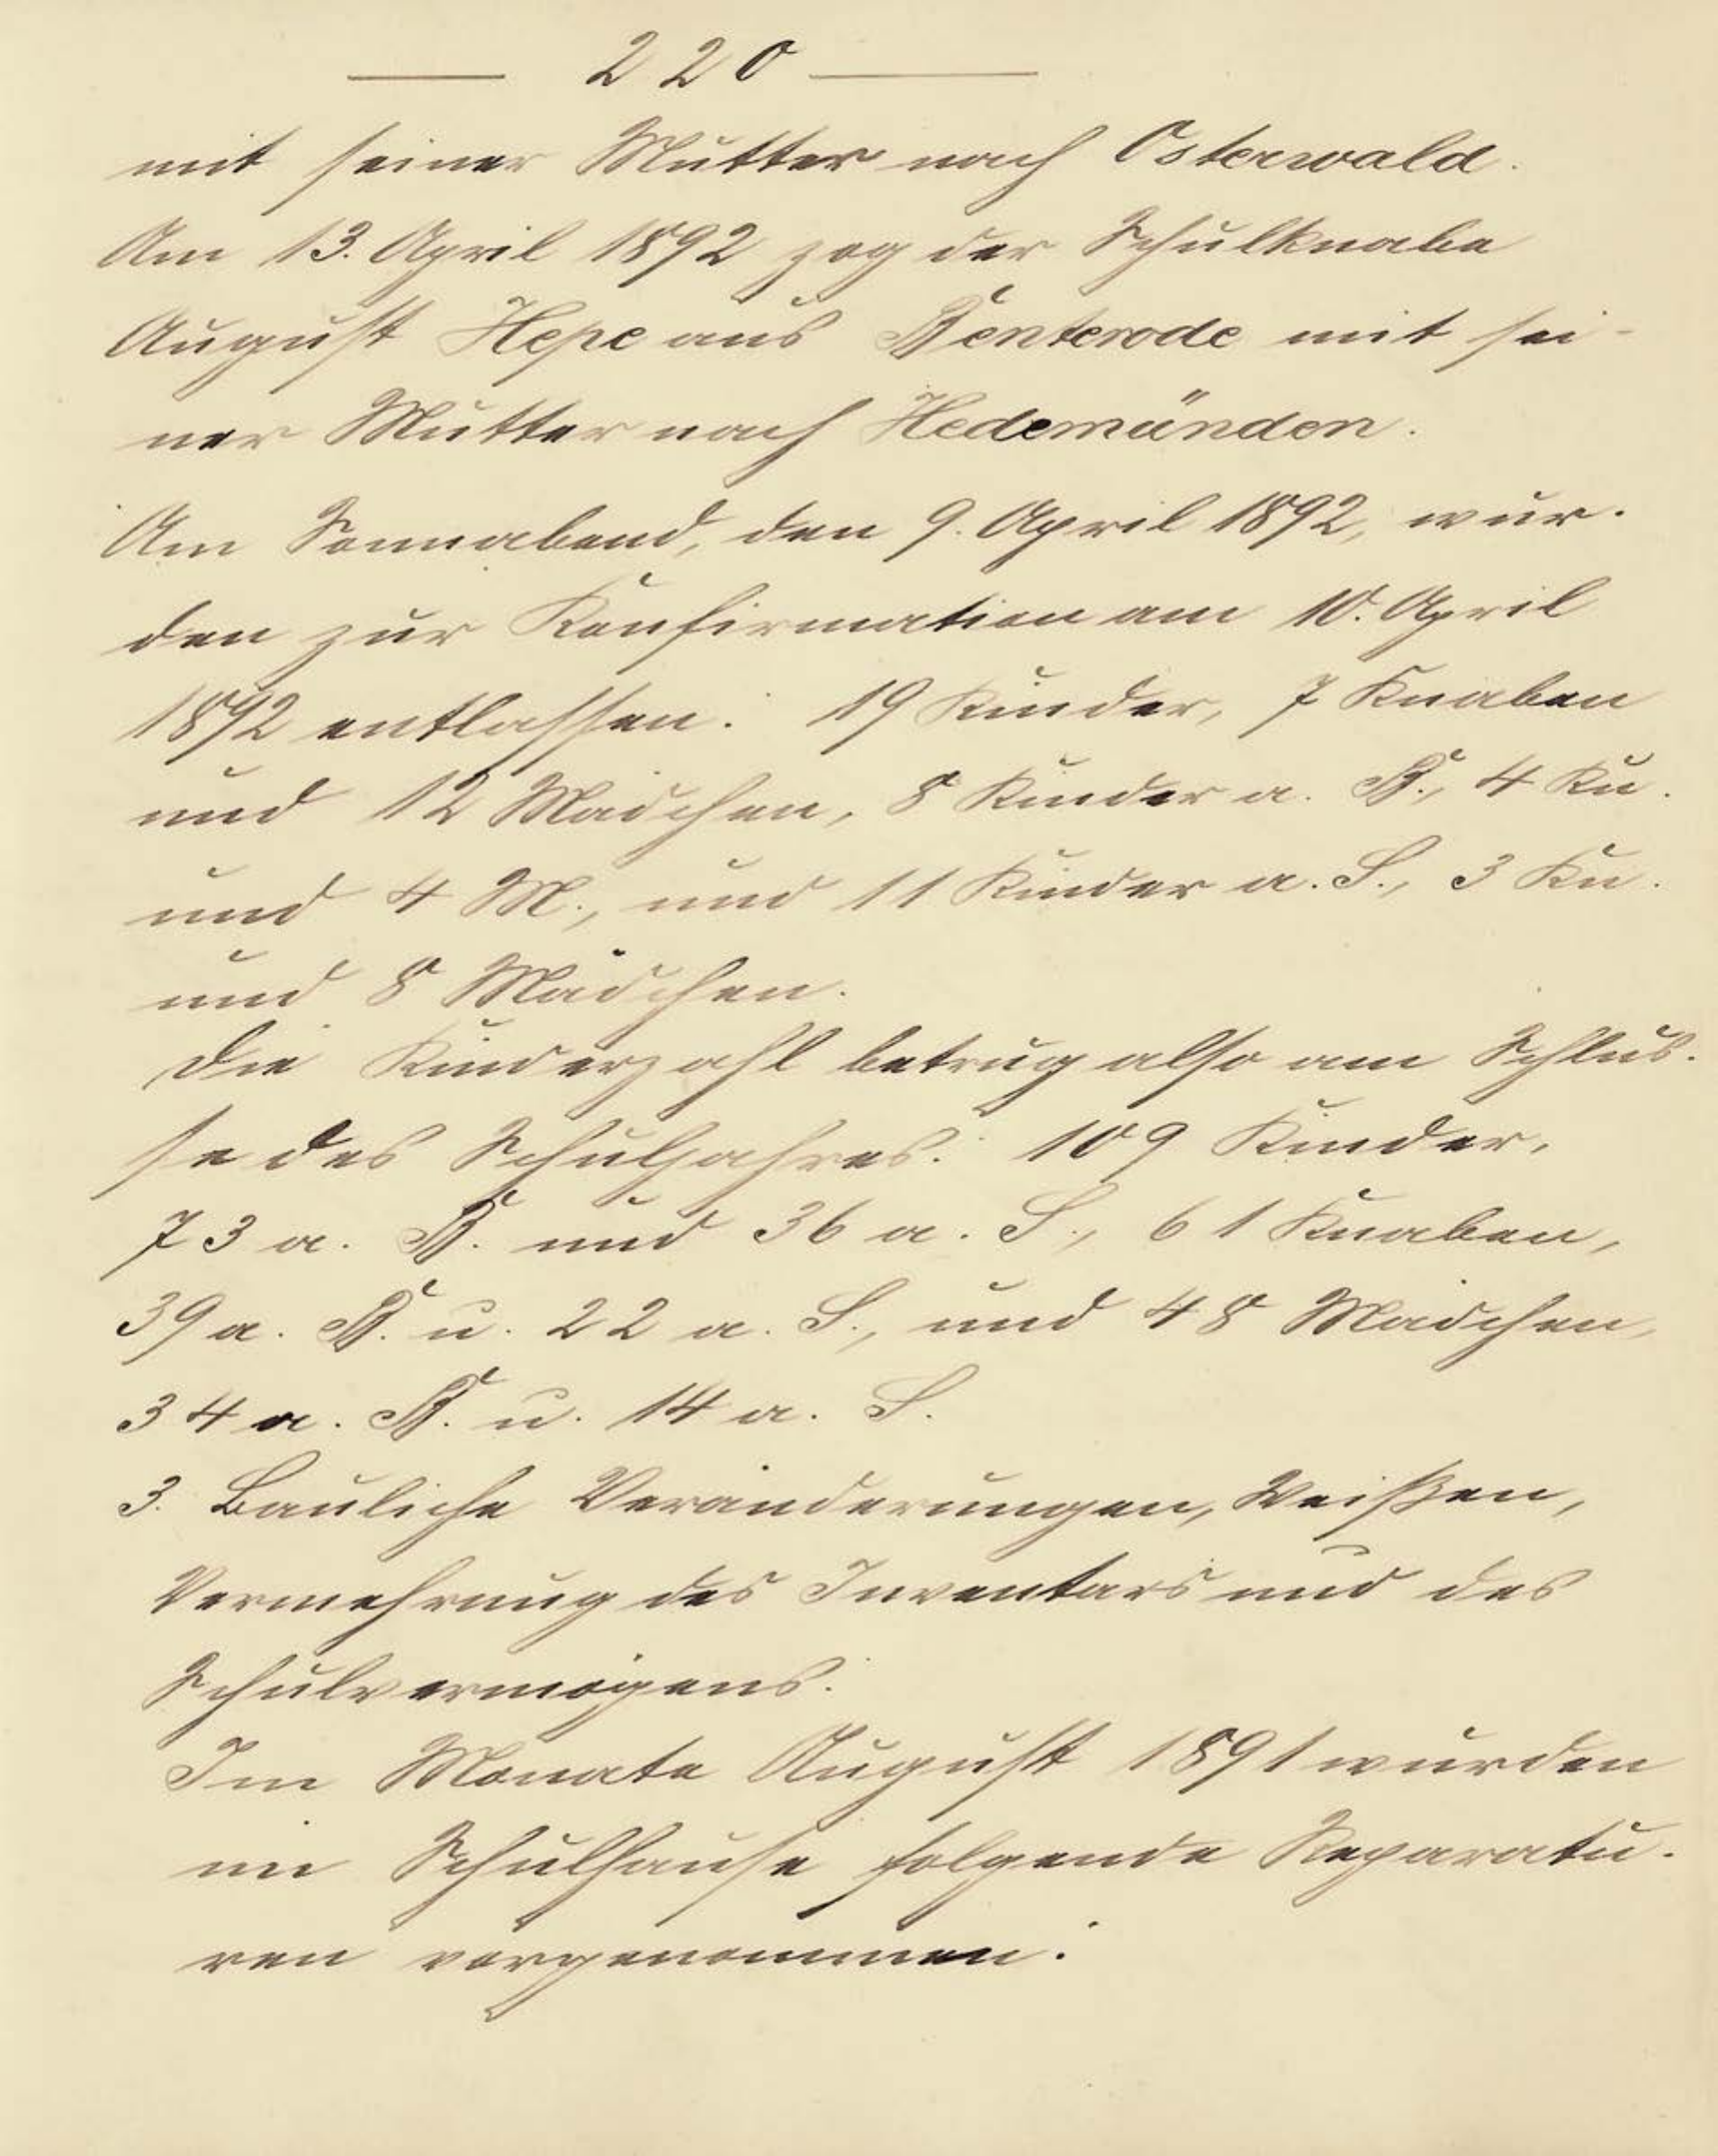 — 220 —
mit seiner Mutter nach Osterwald.
Am 13. April 1892 zog der Schulknabe
August Hepe aus Benterode mit sei-
ner Mutter nach Hedemünden.
Am Sonnabend, den 9. April 1892, wur-
den zur Konfirmation am 10. April
1892 entlassen: 19 Kinder, 7 Knaben
und 12 Mädchen, 8 Kinder a. B., 4 Kn.
und 4 M., und 11 Kinder a. S., 3 Kn.
und 8 Mädchen.
Die Kinderzahl betrug also am Schlus-
se des Schuljahres: 109 Kinder,
73 a. B. und 36 a. S., 61 Knaben,
39 a. B. u. 22 a. S., und 48 Mädchen,
34 a. B. u. 14 a. S.
3. Bauliche Veränderungen, Weißen,
Vermehrung des Inventars und des
Schulvermögens:
Im Monate August 1891 wurden
im Schulhause folgende Reparatu-
ren vorgenommen: